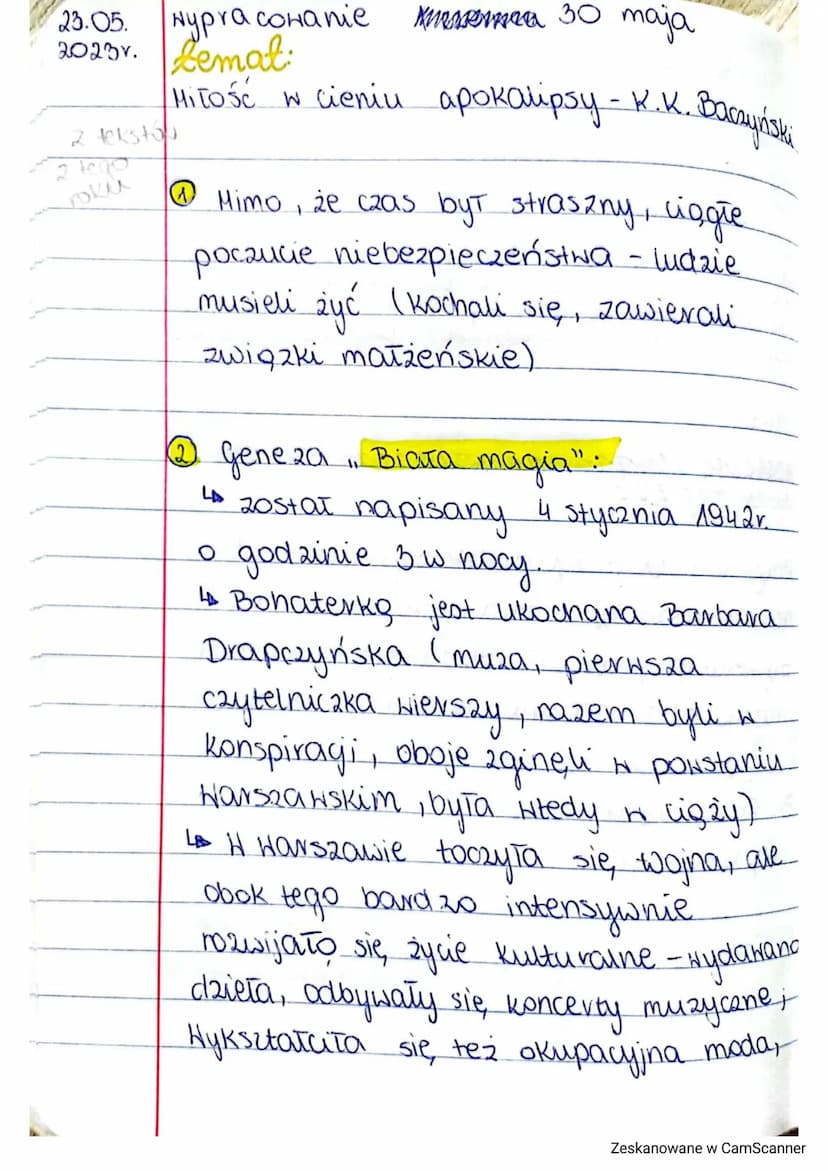 23.05.
2023r.
Wypracowanie 30 maja
temat:
Miłość w cieniu apokalipsy - K.K. Baczyński
2 tekstów
z tego
roku
① Mimo, że czas był straszny, ciągłe
poczucie niebezpieczeństwa - ludzie
musieli żyć (kochali się, zawierali
związki małżeńskie)
② Geneza „Biała magia":
↳ został napisany 4 stycznia 1942r.
o godzinie 3 w nocy.
↳ Bohaterką jest ukochana Barbara
Drapczyńska (muza, pierwsza
czytelniczka wierszy, razem byli w
konspiracji, oboje zginęli w powstaniu
Warszawskim, była wtedy w ciąży)
↳ W Warszawie toczyła się wojna, ale
obok tego bardzo intensywnie
rozwijało się życie kulturalne - wydawano
dzieła, odbywały się koncerty muzyczne;
Wykształciła się też okupacyjna moda,
Zeskanowane w CamScanner